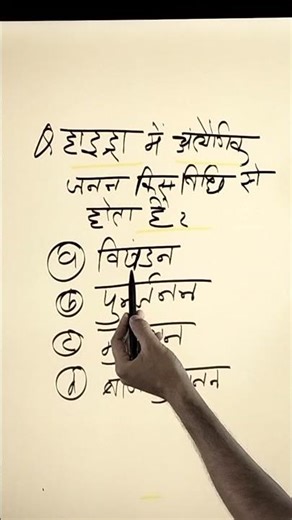 Q. हाइड्रा में अलैंगिक
जनन किस विधि से
होता है?
(a) विखंडन
(b) पुर्नजनन
(c)
(d)